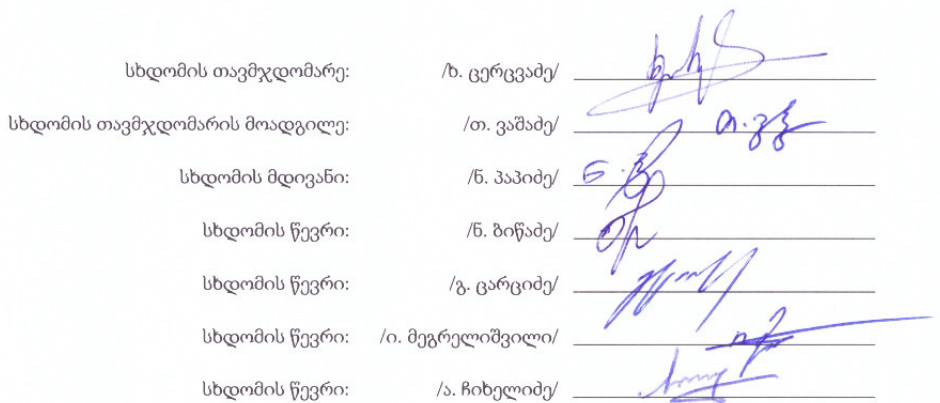 სხდომის თავმჯდომარე: /ხ. ცერცვაძე/
სხდომის თავმჯდომარის მოადგილე: /თ. ვაშაძე/
სხდომის მდივანი: /ნ. პაპიძე/
სხდომის წევრი: /ნ. ბიწაძე/
სხდომის წევრი: /გ. ცარციძე/
სხდომის წევრი: /ი. მეგრელიშვილი/
სხდომის წევრი: /ა. ჩიხელიძე/